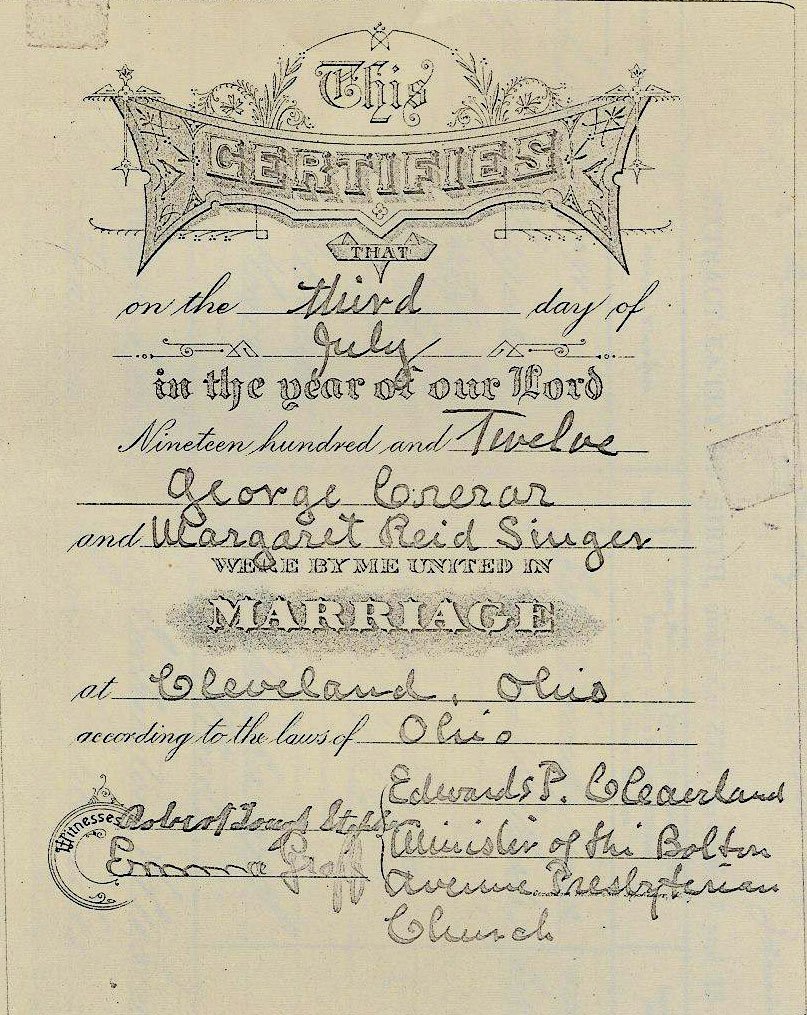 This
CERTIFIES
THAT
on the third day of
July
in the year of our Lord
Nineteen hundred and Twelve
George Crerar
and Margaret Reid Singer
WERE BY ME UNITED IN
MARRIAGE
at Cleveland, Ohio
according to the laws of Ohio
Witnesses
Robert
Emma Graff
Edwards P.
Minister of the Bolton
Avenue Presbyterian
Church